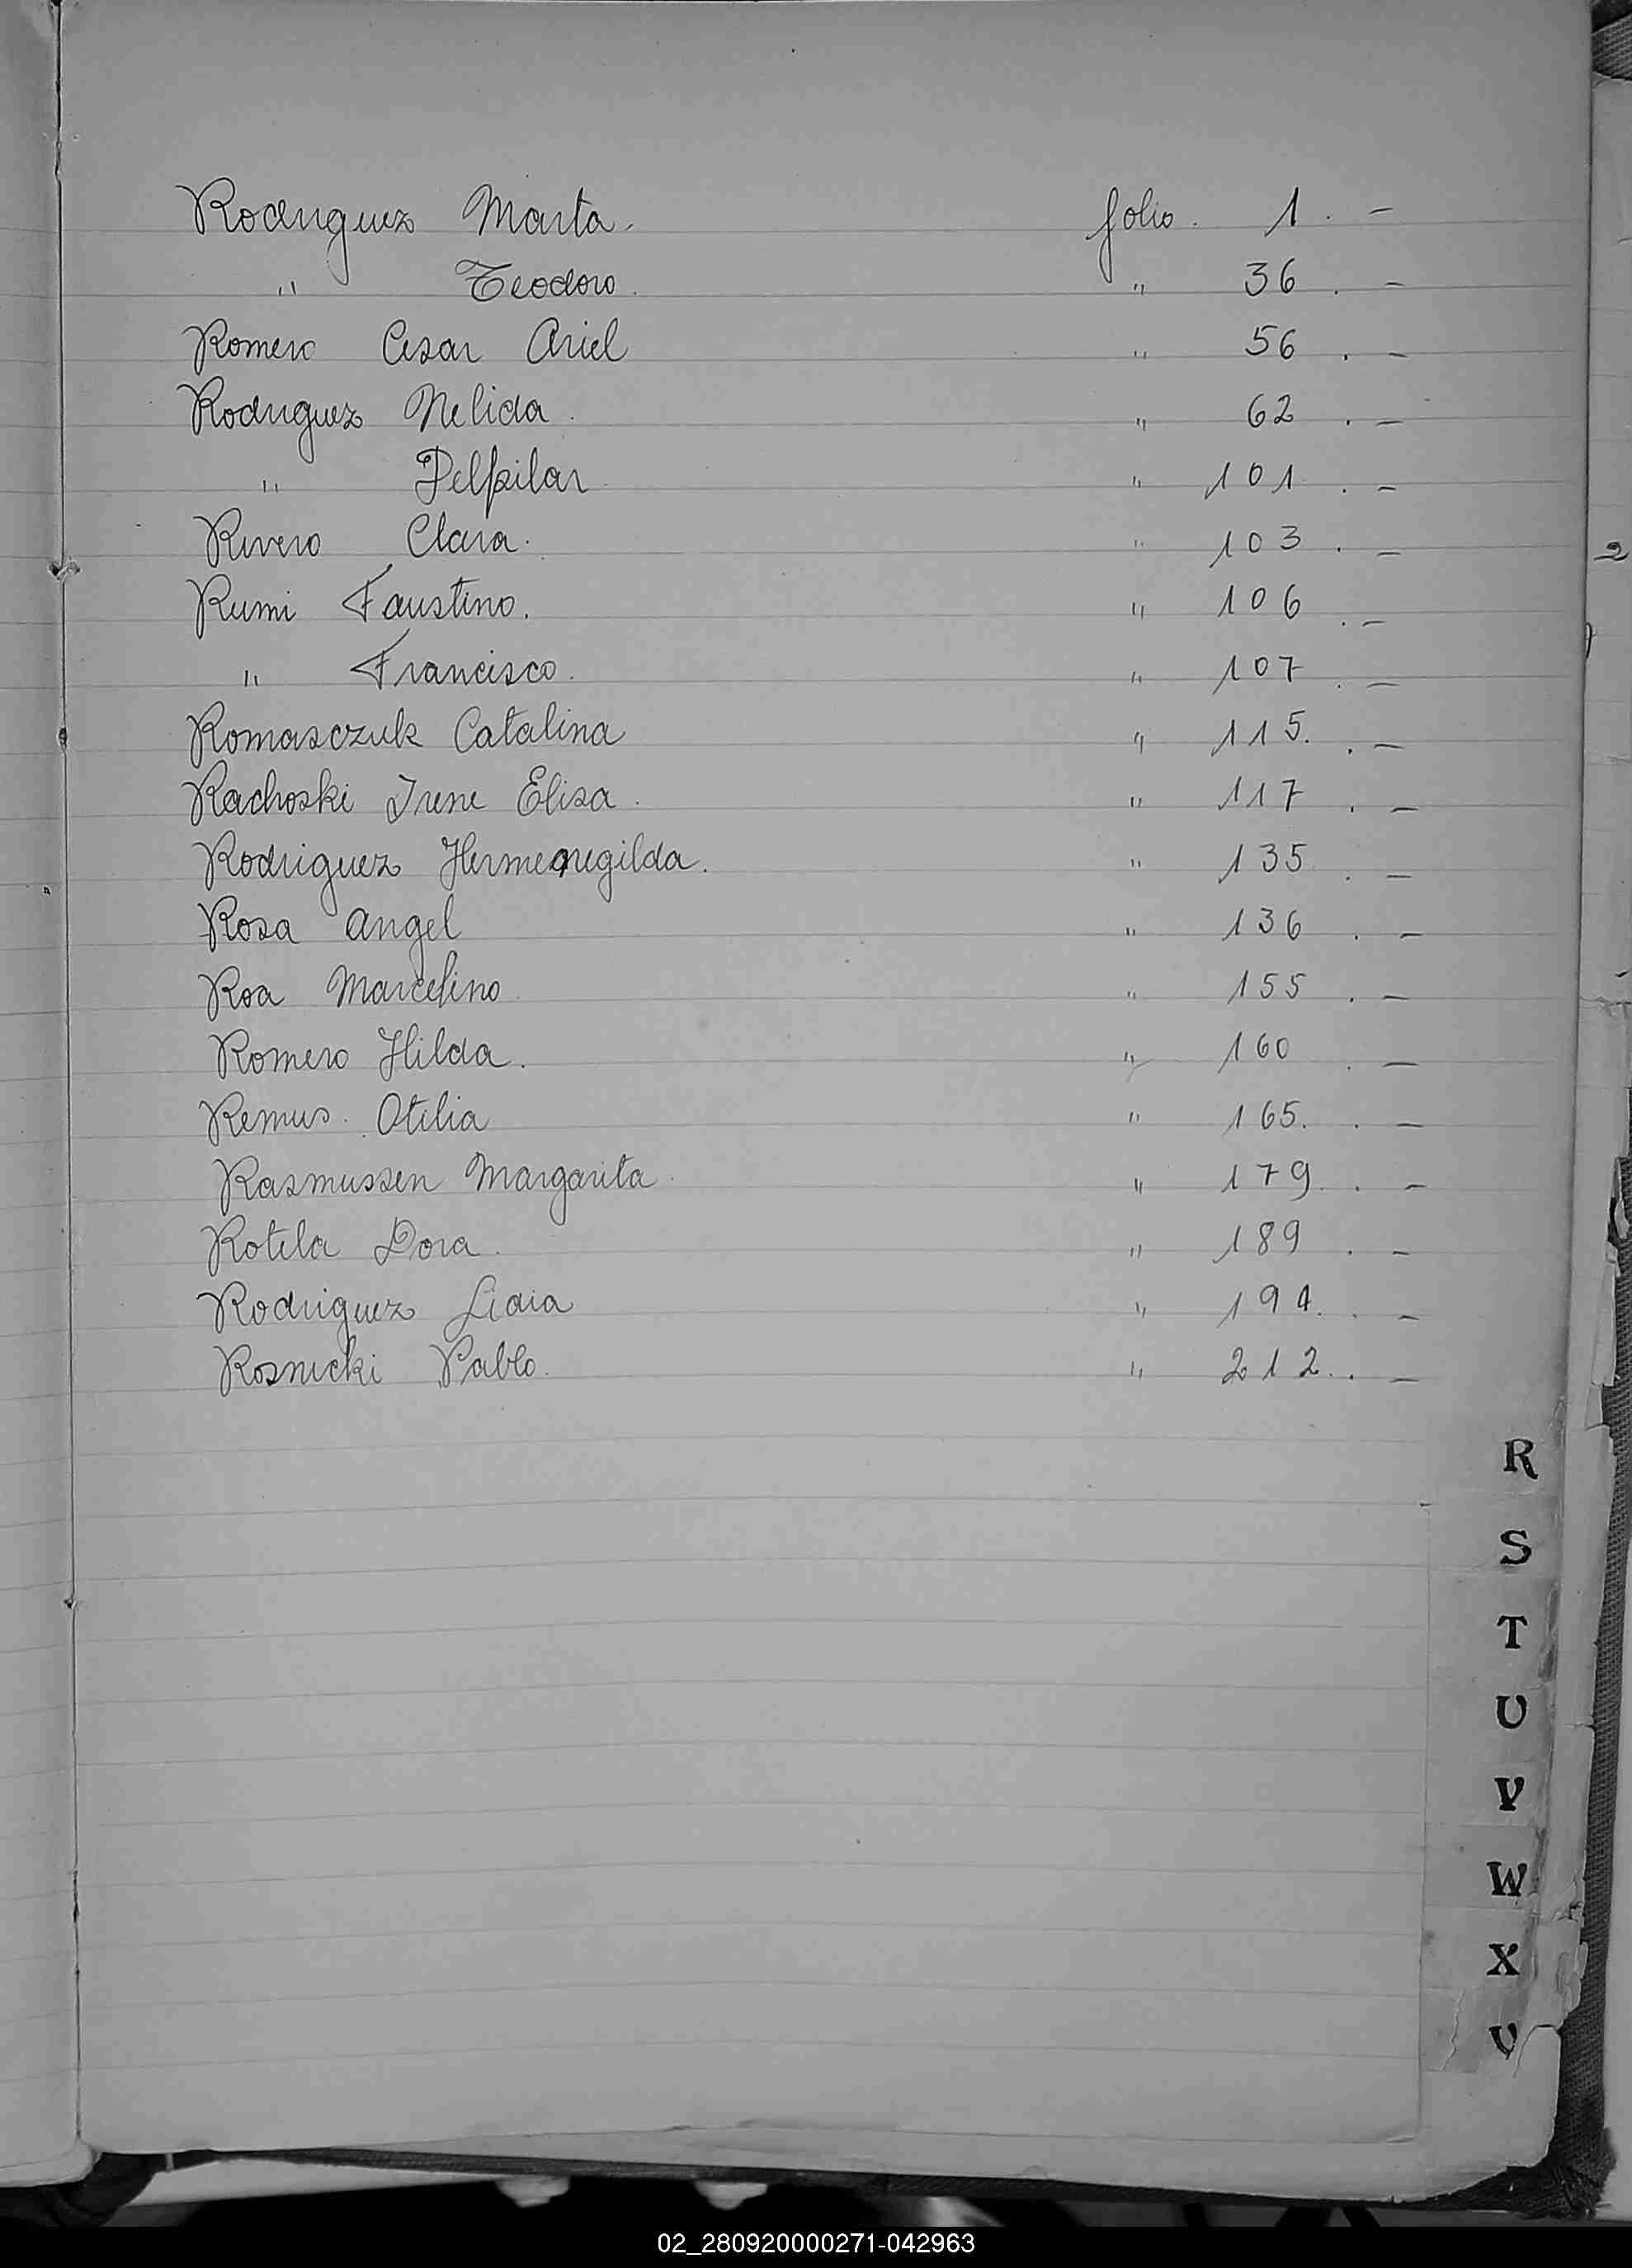 Rodriguez Marta. folio. 1. —
" Teodoro. " 36. —
Romero Cesar Ariel " 56. —
Rodriguez Nelida. " 62. —
" Delpilar " 101. —
Rivero Clara. " 103. —
Rumi Faustino. " 106. —
" Francisco. " 107. —
Romasczuk Catalina " 115. . —
Rachoski Irene Elisa. " 117. —
Rodriguez Hermenegilda. " 135. —
Rosa Angel " 136. —
Roa Marcelino " 155. —
Romero Hilda. " 160. —
Remus. Otilia " 165. . —
Rasmussen Margarita. " 179. . —
Rotela Dora. " 189. —
Rodriguez Lidia " 194. . —
Rosnicki Pablo. " 212. . —
R
S
T
U
V
W
X
02_280920000271-042963